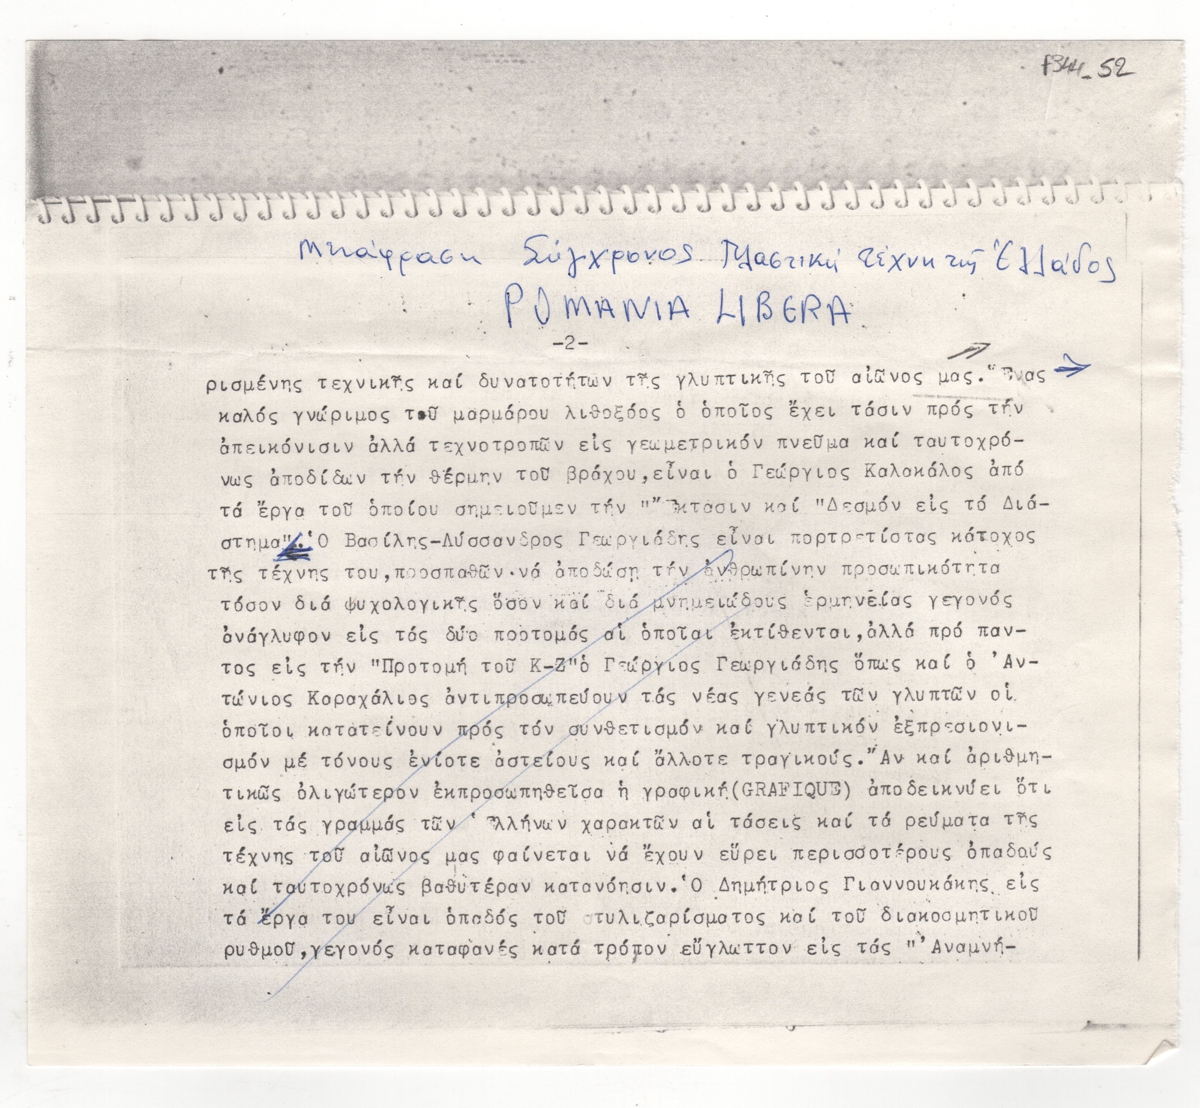 F344_52
Μετάφραση Σύγχρονος Πλαστική τέχνη της Ελλάδος
ΡΟΜΑΝΙΑ LIBERA
-2-
ρισμένης τεχνικῆς καί δυνατοτήτων τῆς γλυπτικῆς τοῦ αἰῶνος μας. Ἕνας
καλός γνώριμος τοῦ μαρμάρου λιθοξόος ὁ ὁποῖος ἔχει τάσιν πρός τήν
ἀπεικόνισιν ἀλλά τεχνοτροπῶν εἰς γεωμετρικόν πνεῦμα καί ταυτοχρό-
νως ἀποδίδων τήν θέρμην τοῦ βράχου,εἶναι ὁ Γεώργιος Καλακάλος ἀπό
τά ἔργα τοῦ ὁποίου σημειοῦμεν τήν "Ἔκτασιν καί "Δεσμόν εἰς τό Διά-
στημα".Ὁ Βασίλης-Λύσσανδρος Γεωργιάδης εἶναι πορτρετίστας κάτοχος
τῆς τέχνης του,προσπαθῶν νά ἀποδώσῃ τήν ἀνθρωπίνην προσωπικότητα
τόσον διά ψυχολογικῆς ὅσον καί διά μνημειώδους ἑρμηνείας γεγονός
ἀνάγλυφον εἰς τάς δύο προτομάς αἱ ὁποῖαι ἐκτίθενται,ἀλλά πρό παν-
τος εἰς τήν "Προτομή τοῦ Κ-Ζ"ὁ Γεώργιος Γεωργιάδης ὅπως καί ὁ Ἀν-
τώνιος Καραχάλιος ἀντιπροσωπεύουν τάς νέας γενεάς τῶν γλυπτῶν οἱ
ὁποῖοι κατατείνουν πρός τόν συνθετισμόν καί γλυπτικόν ἐξπρεσιονι-
σμόν μέ τόνους ἐνίοτε ἀστείους καί ἄλλοτε τραγικούς. Ἄν καί ἀριθμη-
τικῶς ὀλιγώτερον ἐκπροσωπηθεῖσα ἡ γραφική(GRAFIQUE) ἀποδεικνύει ὅτι
εἰς τάς γραμμάς τῶν Ἑλλήνων χαρακτῶν αἱ τάσεις καί τά ρεύματα τῆς
τέχνης τοῦ αἰῶνος μας φαίνεται νά ἔχουν εὕρει περισσοτέρους ὀπαδούς
καί ταὐτοχρόνως βαθυτέραν κατανόησιν.Ὁ Δημήτριος Γιαννουκάκης εἰς
τά ἔργα του εἶναι ὀπαδός τοῦ στυλιζαρίσματος καί τοῦ διακοσμητικοῦ
ρυθμοῦ,γεγονός καταφανές κατά τρόπον εὔγλωττον εἰς τάς "Ἀναμνή-